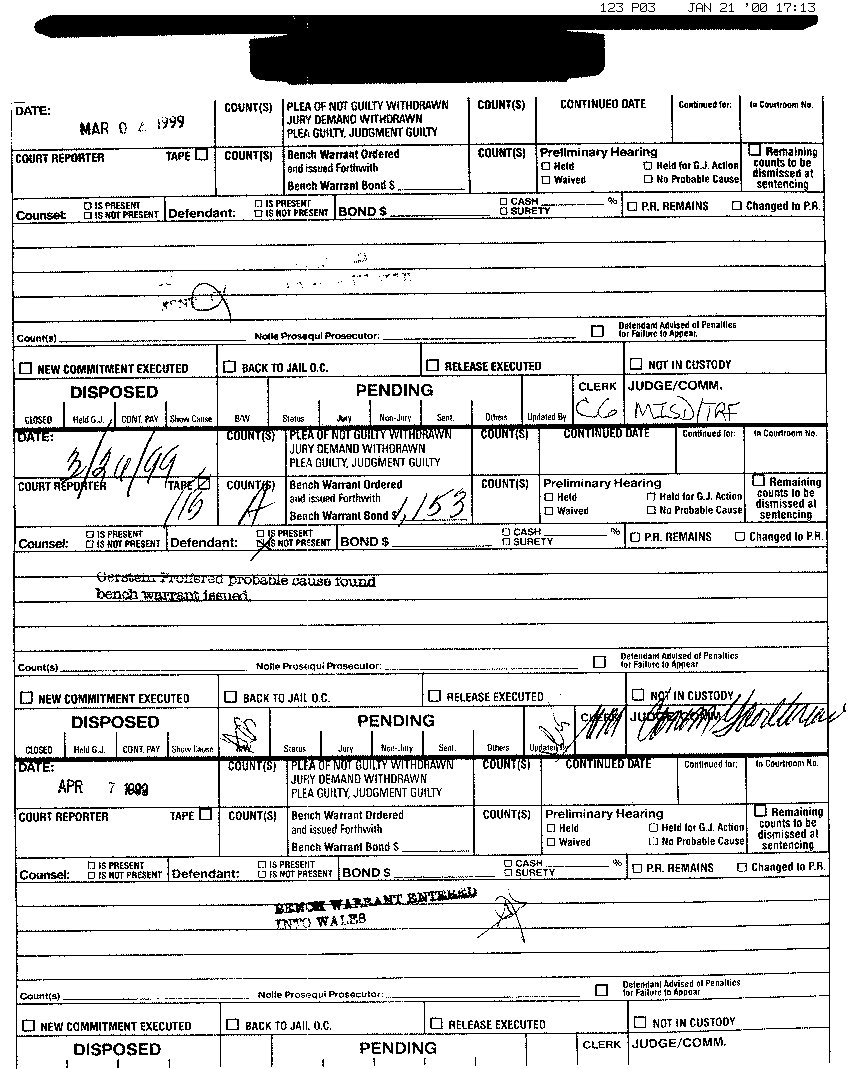 123 P03 JAN 21 '00 17:13
DATE: MAR 0 4 1999 COUNT(S) PLEA OF NOT GUILTY WITHDRAWN COUNT(S) CONTINUED DATE Continued for: In Courtroom No.
JURY DEMAND WITHDRAWN
PLEA GUILTY, JUDGMENT GUILTY
COURT REPORTER TAPE ☐ COUNT(S) Bench Warrant Ordered COUNT(S) Preliminary Hearing ☐ Remaining
and issued Forthwith ☐ Held ☐ Held for G.J. Action counts to be
Bench Warrant Bond $ ☐ Waived ☐ No Probable Cause dismissed at
sentencing
Counsel: ☐ IS PRESENT ☐ IS NOT PRESENT Defendant: ☐ IS PRESENT ☐ IS NOT PRESENT BOND $ ☐ CASH % ☐ SURETY ☐ P.R. REMAINS ☐ Changed to P.R.
Count(s) Nolle Prosequi Prosecutor: ☐ Defendant Advised of Penalties
for Failure to Appear.
☐ NEW COMMITMENT EXECUTED ☐ BACK TO JAIL O.C. ☐ RELEASE EXECUTED ☐ NOT IN CUSTODY
DISPOSED PENDING CLERK JUDGE/COMM.
CG MISD/TRF
CLOSED Held G.J. CONT. PAY Show Cause B/W Status Jury Non-Jury Sent. Others Updated By
DATE: 3/26/99 COUNT(S) PLEA OF NOT GUILTY WITHDRAWN COUNT(S) CONTINUED DATE Continued for: In Courtroom No.
JURY DEMAND WITHDRAWN
PLEA GUILTY, JUDGMENT GUILTY
COURT REPORTER TAPE ☐ 115 COUNT(S) A Bench Warrant Ordered COUNT(S) Preliminary Hearing ☐ Remaining
and issued Forthwith ☐ Held ☐ Held for G.J. Action counts to be
Bench Warrant Bond $ 1,153 ☐ Waived ☐ No Probable Cause dismissed at
sentencing
Counsel: ☐ IS PRESENT ☐ IS NOT PRESENT Defendant: ☐ IS PRESENT ☒ IS NOT PRESENT BOND $ ☐ CASH % ☐ SURETY ☐ P.R. REMAINS ☐ Changed to P.R.
Gerstein Proffered probable cause found
bench warrant issued
Count(s) Nolle Prosequi Prosecutor: ☐ Defendant Advised of Penalties
for Failure to Appear
☐ NEW COMMITMENT EXECUTED ☐ BACK TO JAIL O.C. ☐ RELEASE EXECUTED ☐ NOT IN CUSTODY
DISPOSED PENDING CLERK JUDGE/COMM.
CLOSED Held G.J. CONT. PAY Show Cause B/W Status Jury Non-Jury Sent. Others Updated By
DATE: APR 7 1999 COUNT(S) PLEA OF NOT GUILTY WITHDRAWN COUNT(S) CONTINUED DATE Continued for: In Courtroom No.
JURY DEMAND WITHDRAWN
PLEA GUILTY, JUDGMENT GUILTY
COURT REPORTER TAPE ☐ COUNT(S) Bench Warrant Ordered COUNT(S) Preliminary Hearing ☐ Remaining
and issued Forthwith ☐ Held ☐ Held for G.J. Action counts to be
Bench Warrant Bond $ ☐ Waived ☐ No Probable Cause dismissed at
sentencing
Counsel: ☐ IS PRESENT ☐ IS NOT PRESENT Defendant: ☐ IS PRESENT ☐ IS NOT PRESENT BOND $ ☐ CASH % ☐ SURETY ☐ P.R. REMAINS ☐ Changed to P.R.
BENCH WARRANT ENTERED
INTO WALES
Count(s) Nolle Prosequi Prosecutor: ☐ Defendant Advised of Penalties
for Failure to Appear
☐ NEW COMMITMENT EXECUTED ☐ BACK TO JAIL O.C. ☐ RELEASE EXECUTED ☐ NOT IN CUSTODY
DISPOSED PENDING CLERK JUDGE/COMM.